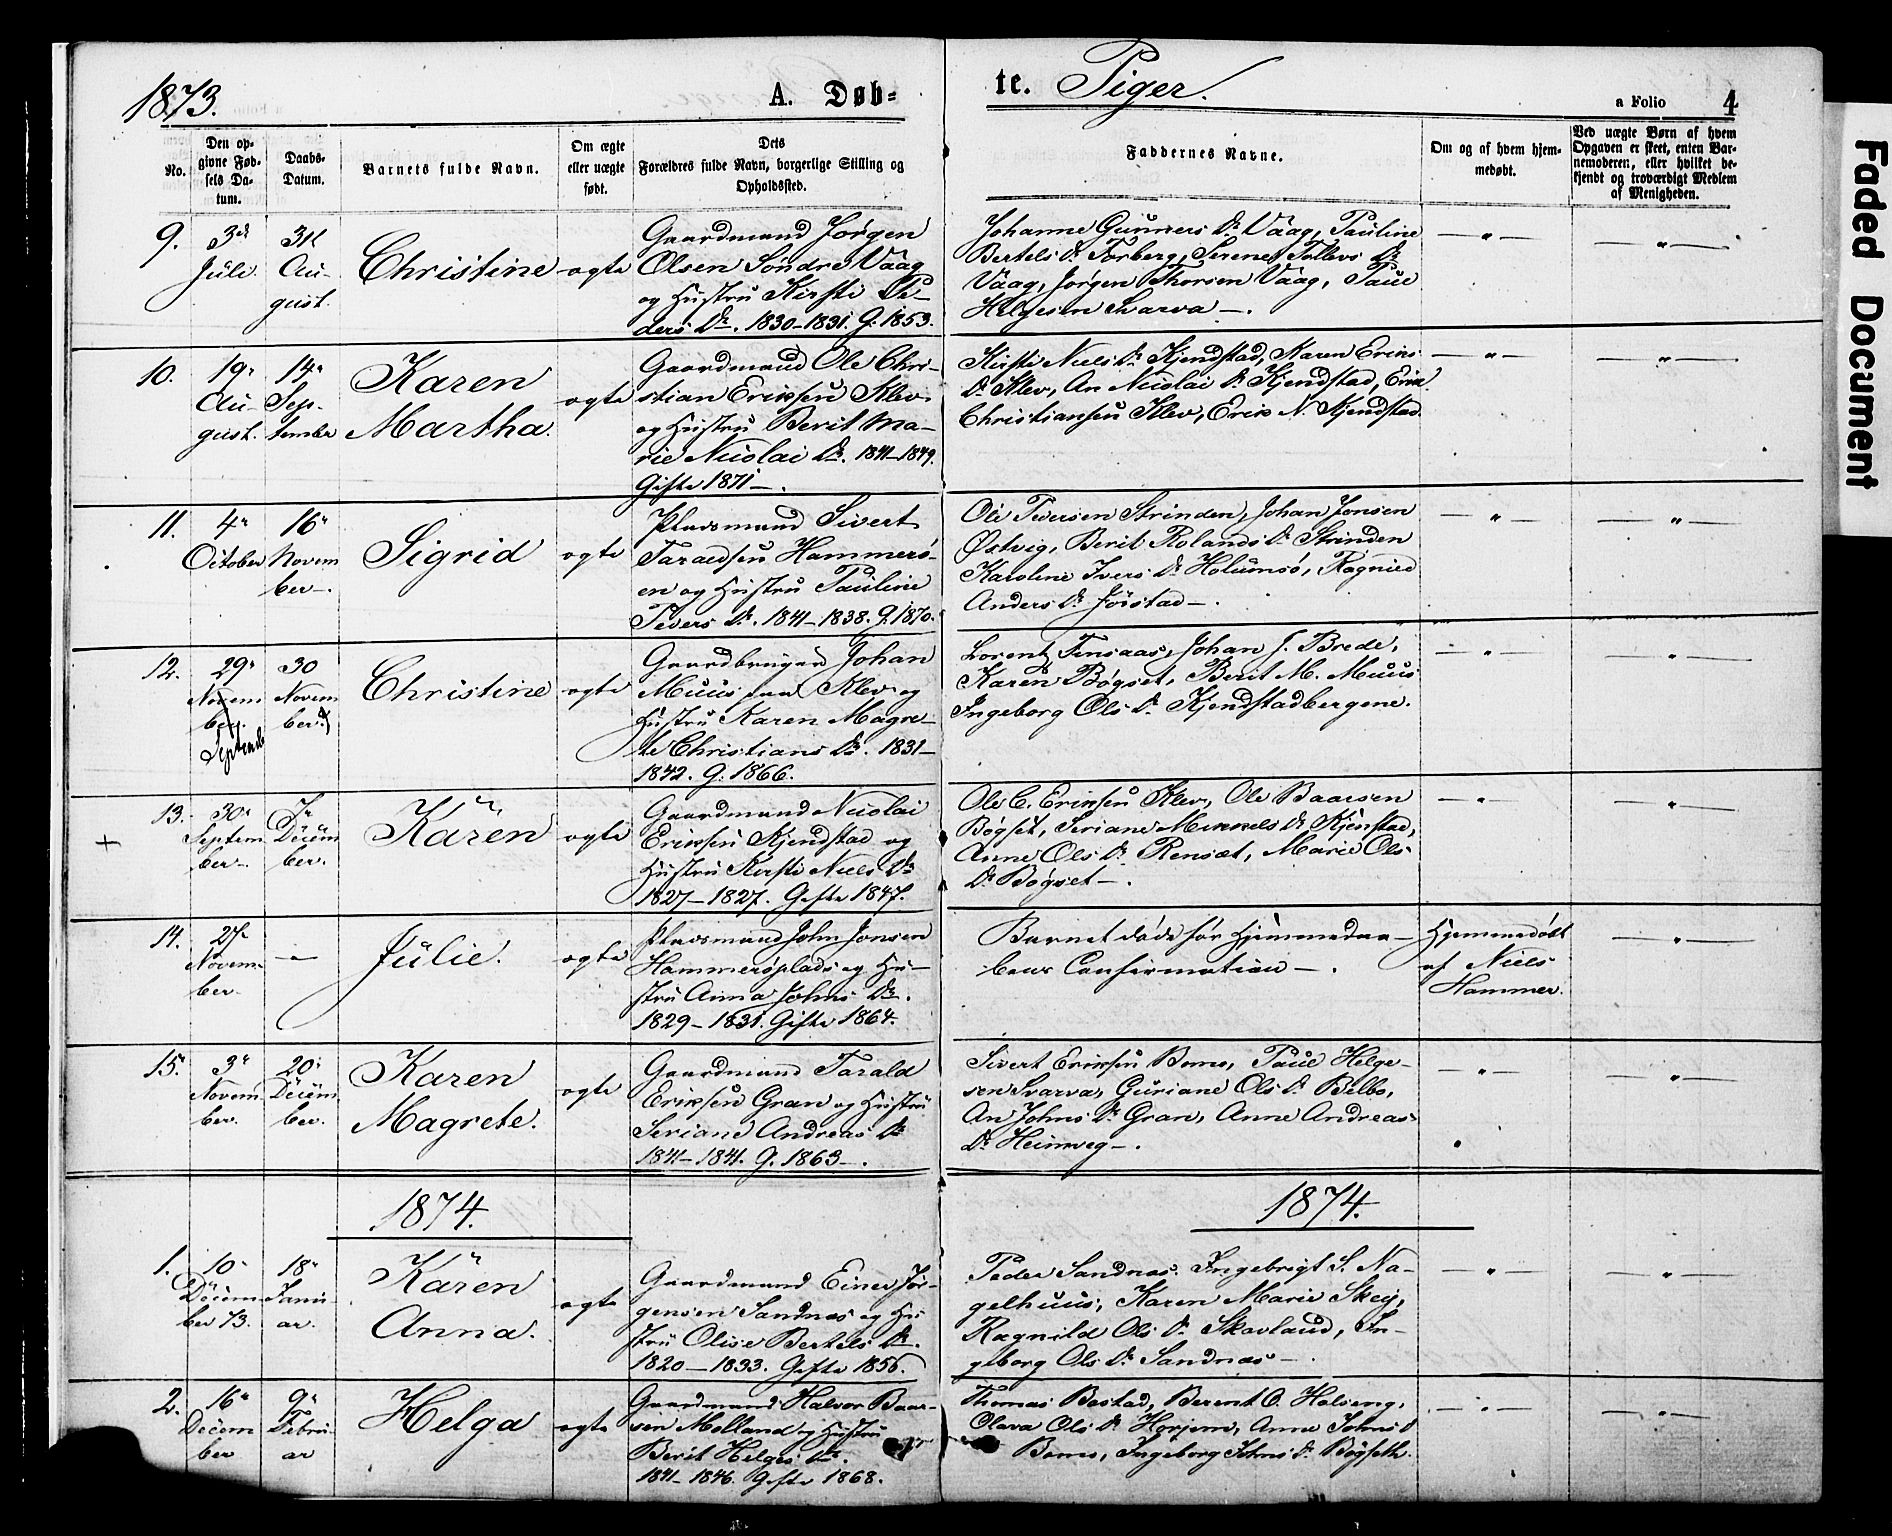 1873.
A. Døb=
te. Piger.
a Folio 4
No.
Den op-
givne Føb-
sels Da-
tum.
Daabs-
Datum.
Barnets fulde Navn.
Om ægte
eller uægte
født.
Dets
Forældres fulde Navn, borgerlige Stilling og
Opholdssted.
Faddernes Navne.
Om og af hvem hjem-
medøbt.
Ved uægte Børn af hvem
Opgaven er skeet, enten Bar-
nemoderen, eller hvilket be-
kjendt og troværdigt Medlem
af Menigheden.
9.
3de
Juli.
31te
Au-
gust.
Christine
ægte
Gaardmand Jørgen
Olsen Søndre Vaag
og Hustru Kirsti Pe-
ders Dr. 1830-1831. G. 1853.
Johanne Gunners Dr Vaag, Pauline
Bertels Dr Forberg, Serene Tollevs Dr
Vaag, Jørgen Thorsen Vaag, Paul
Helgesen Svarva -.
— " —
— " —
10.
19de
Au-
gust.
14de
Sep-
tember
Karen
Martha.
ægte
Gaardmand Ole Chri-
stian Eriksen Klev
og Hustru Berit Ma-
rie Nicolai Dr. 1841-1849.
Gifte 1871 -.
Kirsti Niels Dr Kjendstad, Karen Eriks
Dr Klev, An Nicolai Dr Kjendstad, Erik
Christiansen Klev, Erik N. Kjendstad.
— " —
— " —
11.
4de
October
16de
Novem
ber -.
Sigrid
ægte
Pladsmand Sivert
Taraldsen Hammersø-
en og Hustru Pauline
Pevers Dr. 1841-1838. G. 1870.
Ole Peversen Strinden, Johan Jonsen
Østvig, Berit Rolands Dr Strinden
Karoline Ivers Dr Holumsø, Ragnild
Anders Dr Jørstad -.
— " —
— " —
12.
29de
Novem
ber.
September
30
Novem
ber.
Christine
ægte
Gaardbruger Johan
Muus paa Klev og
Hustru Karen Magre-
te Christians Dr. 1831-
1842. G. 1866.
Lorentz Finsaas, Johan J. Brede,
Karen Bøgset, Berit M. Muus
Ingeborg Ols Dr Kjendstadbergene.
— " —
"
+
13.
30te
Septem
ber -
7de
Decem
ber.
Karen
ægte
Gaardmand Nicolai
Eriksen Kjendstad og
Hustru Kirsti Niels Dr
1827-1827. Gifte 1847.
Ole C. Eriksen Klev, Ole Baarsen
Bøgset, Seriane Mikkels Dr Kjenstad,
Anne Ols Dr Rensæt, Marie Ols-
Dr Bøgset -.
— " —
"
14.
27de
Novem-
ber
—
Julie.
ægte
Pladsmand John Jonsen
Hammersøplads og Hu-
stru Anna Johns Dr.
1829-1831. Gifte 1864.
Barnet døde før Hjemmedaa-
bens Confirmation -.
Hjemmedøbt
af Niels
Hammer.
— " —
15.
3de
Novem
ber.
20de
Decem
ber.
Karen
Magrete.
ægte
Gaardmand Tarald
Eriksen Gran og Hustru
Seriane Andreas Dr
1841-1841. G. 1863 -.
Sivert Eriksen Bomo, Paul Helge-
sen Svarva, Guriane Ols Dr Belbo,
An Johns Dr Gran, Anne Andreas-
Dr Heimveg -.
— " —
— " —
1874.
1874.
1.
10de
Decem
ber 73.
18de
Janu-
ar.
Karen
Anna.
ægte
Gaardmand Einer Jør-
gensen Sandnæs og Hu
stru Olise Bertels Dr.
1820-1833. Gifte 1856.
Peder Sandnæs. Ingebrigt S. Na-
gelhuus, Karen Marie Skej,
Ragnild Ols Dr Skavland, In-
geborg Ols Dr Sandnæs -.
— " —
— " —
2.
16de
Decem
ber
9de
Febru-
ar
Helga
ægte
Gaardmand Halvor Baar-
sen Molland og Hustru
Berit Helges Dr.
1841-1846. Gifte 1868.
Thomas Bostad, Berent O. Halseng,
Olava Ols Dr Horjem, Anne Johns D
Bomo, Ingeborg Johns Dr Bøgseth.
— " —
— " —
Faded Document